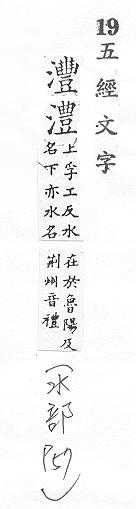 19 五經文字
灃澧
上孚工反水
名下亦水名
在於魯陽及
荆州音禮
（水部 P57）